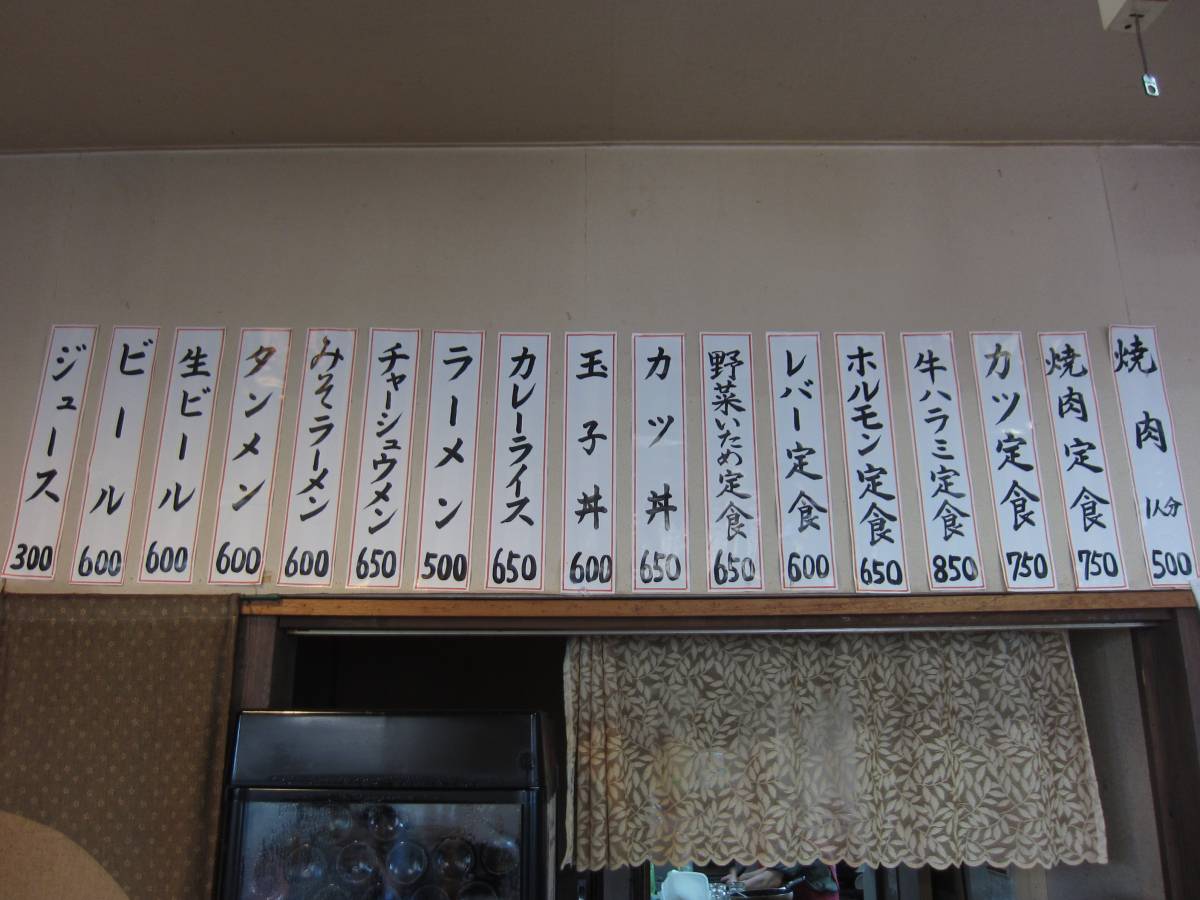 焼肉 1人分 500
焼肉定食 750
カツ定食 750
牛ハラミ定食 850
ホルモン定食 650
レバー定食 600
野菜いため定食 650
カツ丼 650
玉子丼 600
カレーライス 650
ラーメン 500
チャーシュウメン 650
みそラーメン 600
タンメン 600
生ビール 600
ビール 600
ジュース 300